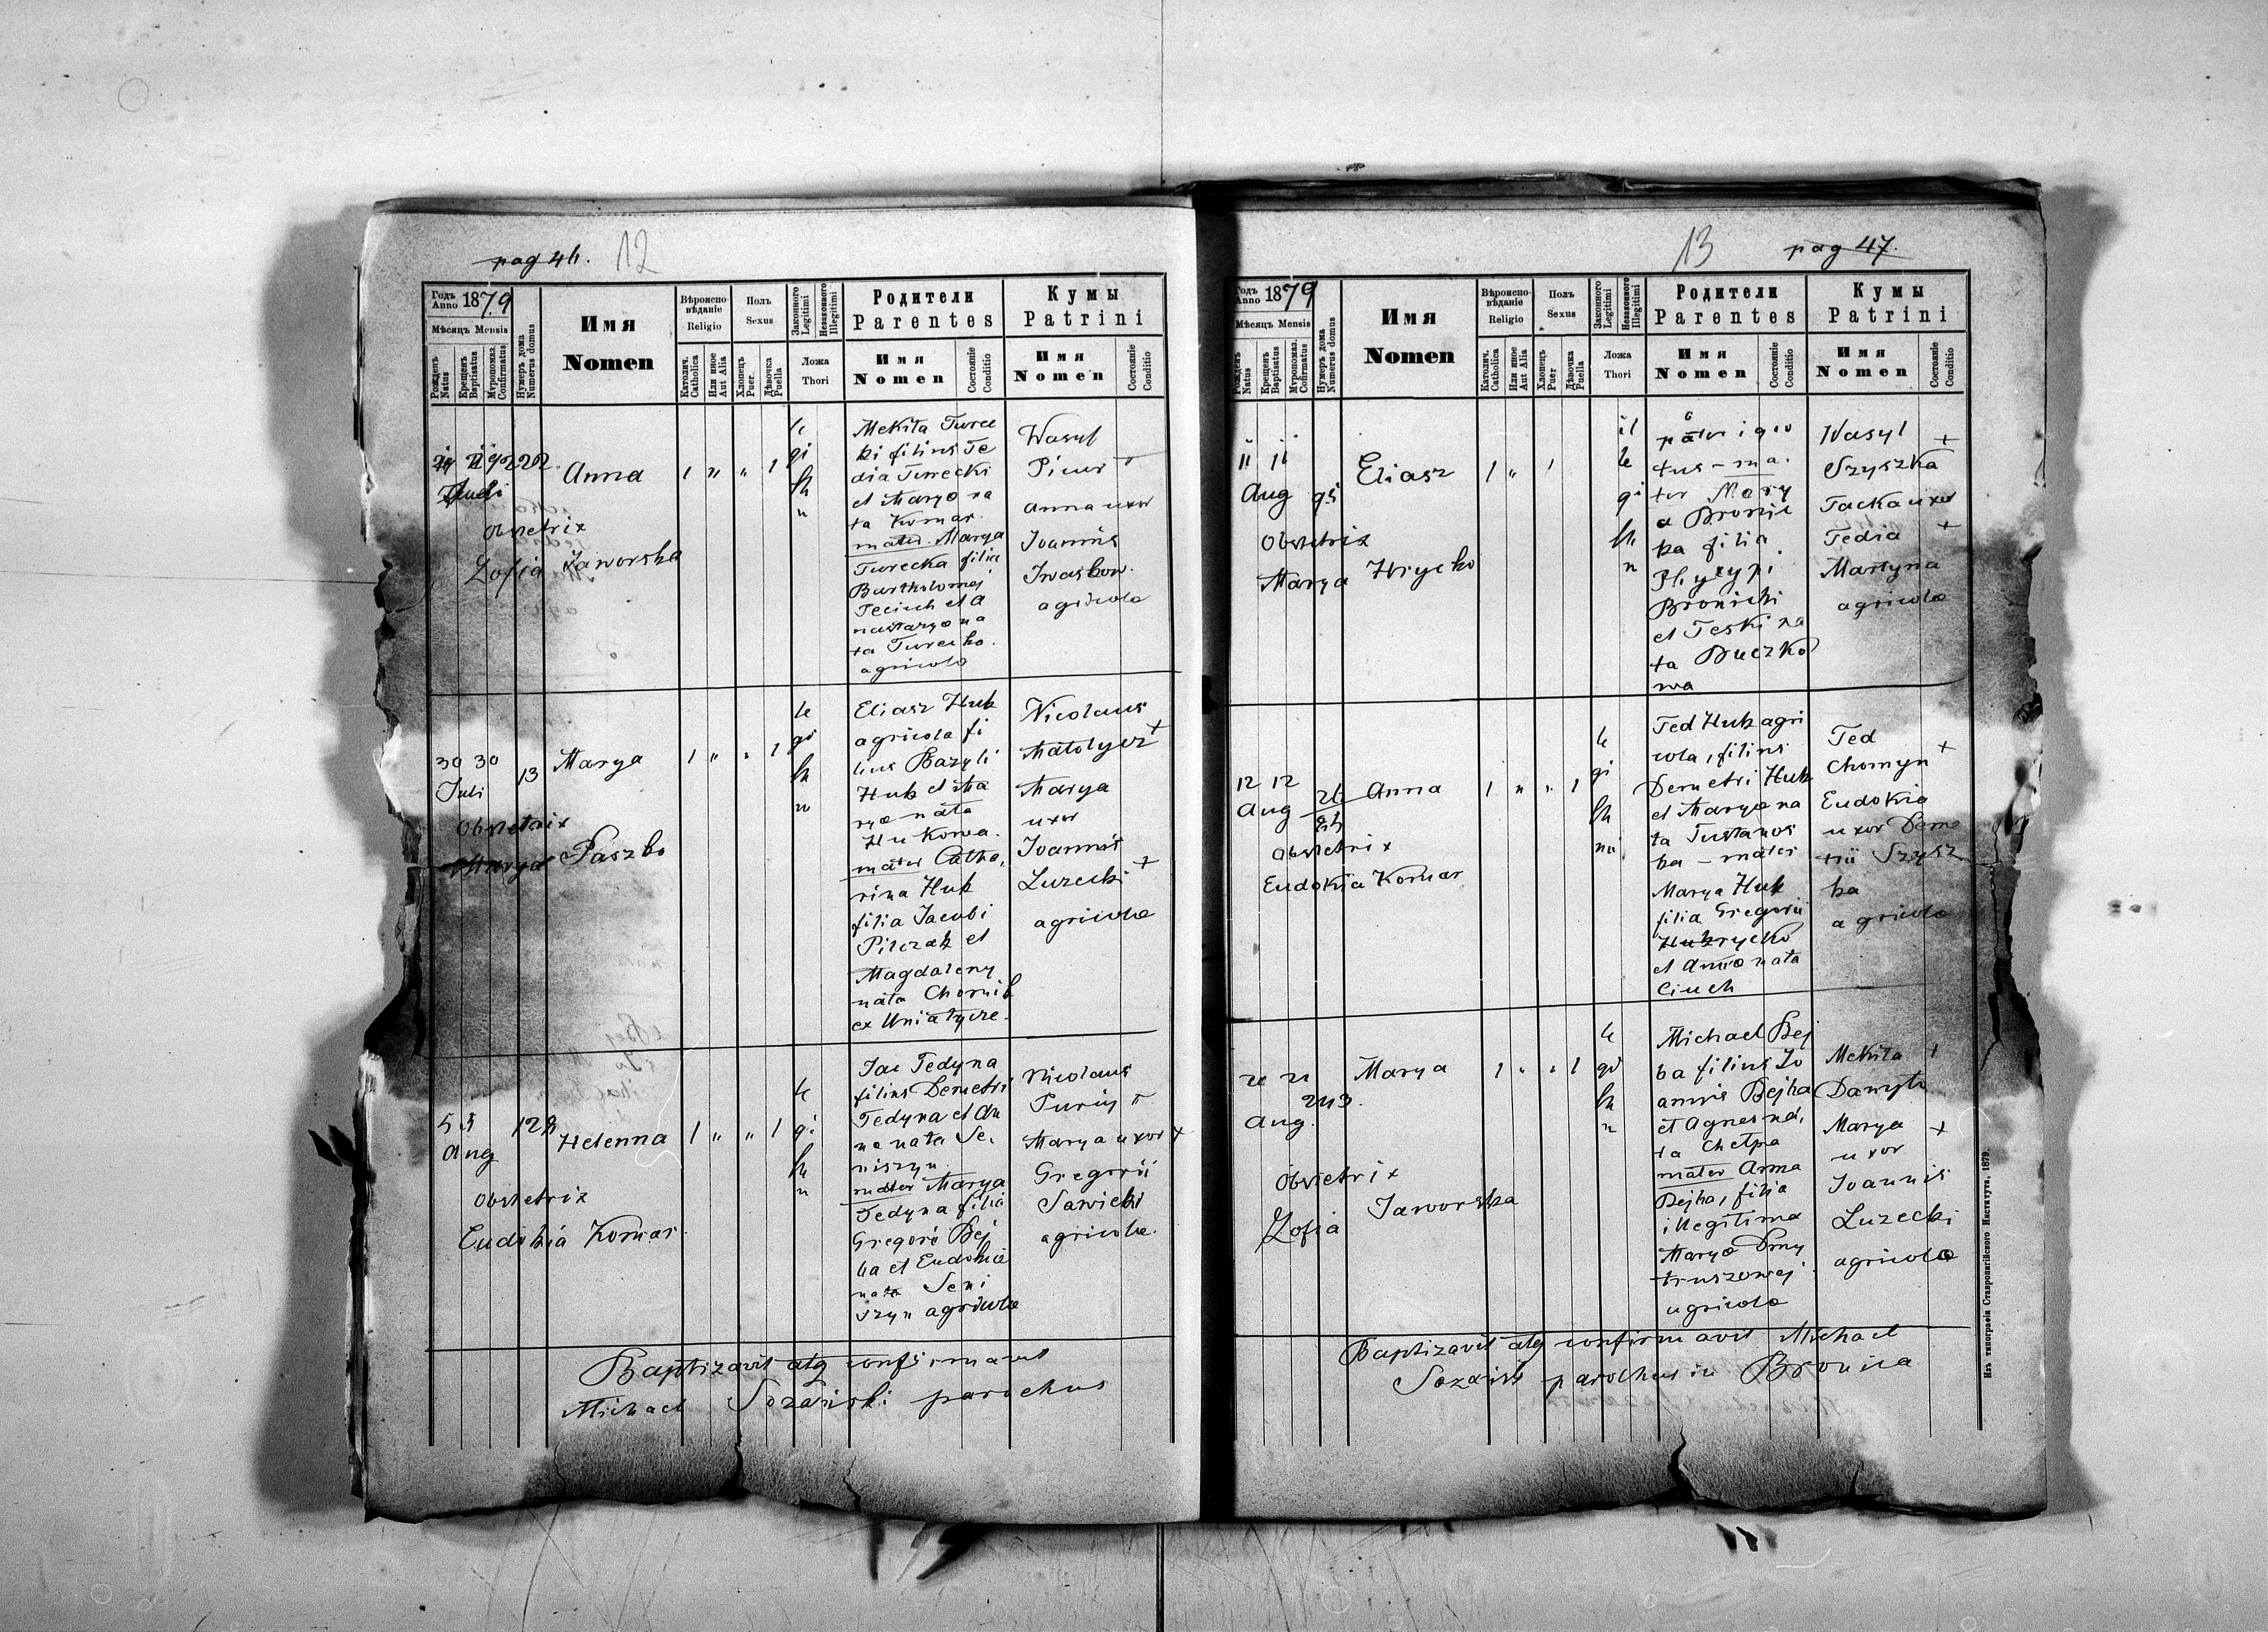 pag 46. 12
Годъ
Anno 1879
Мѣсяцъ Mensis
Рожденъ
Natus
Крещенъ
Baptisatus
Мѵропомаз.
Confirmatus
Нумеръ дома
Numerus domus
Имя
Nomen
Вѣроиспо-
вѣданіе
Religio
Католич.
Catholica
Или иное
Aut Alia
Полъ
Sexus
Хлопецъ
Puer.
Дѣвочка
Puella
Законного
Legitimi
Незаконного
Illegitimi
Ложа
Thori
Родители
Parentes
Имя
Nomen
Состояніе
Conditio
Кумы
Patrini
Имя
Nomen
Состояніе
Conditio
Anna
1 " " 1
le
gi
th
n
Obstetrix
Zofia Jaworska
Mekita Turec
ki filius Fe
dia Turecki
et Marya na
ta Komar.
mater Marya
Turecka filia
Bartholomej
Feciuch et A
nastazya na
ta Turecka.
agricola
Wasyl
Anna uxor
Joannis
Iwaskow.
agricola
30 30
Juli
13
Marya
1 " " 1
le
gi
th
n
Obstetrix
Marya Paszko
Eliasz Huk
agricola fi
lius Bazyli
Huk et Ma
rya nata
Hukowa.
mater Catha,
rina Huk
filia Jacobi
Pilczak et
Magdaleny
nata Chornib
ex Uniatycze.
Nicolaus
Matolycz +
Marya
uxor
Joannis
Luzecki +
agricola
5 5
Aug
129
Helenna
1 " " 1
le
gi
th
n
Obstetrix
Eudokia Komar.
Jac Fedyna
filius Demetri
Fedyna et An
na nata Se.
niszyn
mater Marya
Fedyna filia
Gregori Bej
ka et Eudokia
nata Seni
szyn agricola
Nicolaus
Marya uxor +
Gregorii
Sawicki
agricola.
Baptizavit atq confirmavit
Michael Sozański parochus
13 pag 47.
Годъ
Anno 1879
Мѣсяцъ Mensis
Рожденъ
Natus
Крещенъ
Baptisatus
Мѵропомаз.
Cofirmatus
Нумеръ дома
Numerus domus
Имя
Nomen
Вѣроиспо-
вѣданіе
Religio
Католич.
Catholica
Или иное
Aut Alia
Полъ
Sexus
Хлопецъ
Puer
Дѣвочка
Puella
Законного
Legitimi
Незаконного
Illegitimi
Ложа
Thori
Родители
Parentes
Имя
Nomen
Состояніе
Conditio
Кумы
Patrini
Имя
Nomen
Состояніе
Conditio
11 11
Aug 95
Eliasz
1 " 1
il
le
gi
th
n
Obstetrix
Marya Hrycko
pater igno
tus – ma.
ter Mary
a Bronic
ka filia
Phylypi
Bronicki
et Feski na
ta Buczko
wa
Wasyl +
Szyszka
Tacka uxor
Fedia +
Martyna
agricola
12 12
Aug
Anna
1 " " 1
le
gi
th
ni
Obstetrix
Eudokia Komar
Fed Huk agri
cola, filius
Demetri Huk
et Marya na
ta Tustanos
ka – mater
Marya Huk
filia Gregorii
Hukrycko
et Anna nata
Ciuch
Fed
Chomyn +
Eudokia
uxor Deme
trii Szysz
ka
agricola
Aug.
243.
Marya
1 " " 1
le
gi
th
n
Obstetrix
Zofia Jaworska
Michael Bej
ka filius Jo
annis Bejka
et Agnes na,
ta Chetpa
mater Anna
Bejka, filia
illegitima
Marya Dmy
truszowej
agricola
Mekita +
Danylu
Marya +
uxor
Joannis
Luzecki
agricola
Baptizavit atq confirmavit Michael
Sozański parochus in Bronica
Изъ типографіи Ставропигійского Института, 1879.